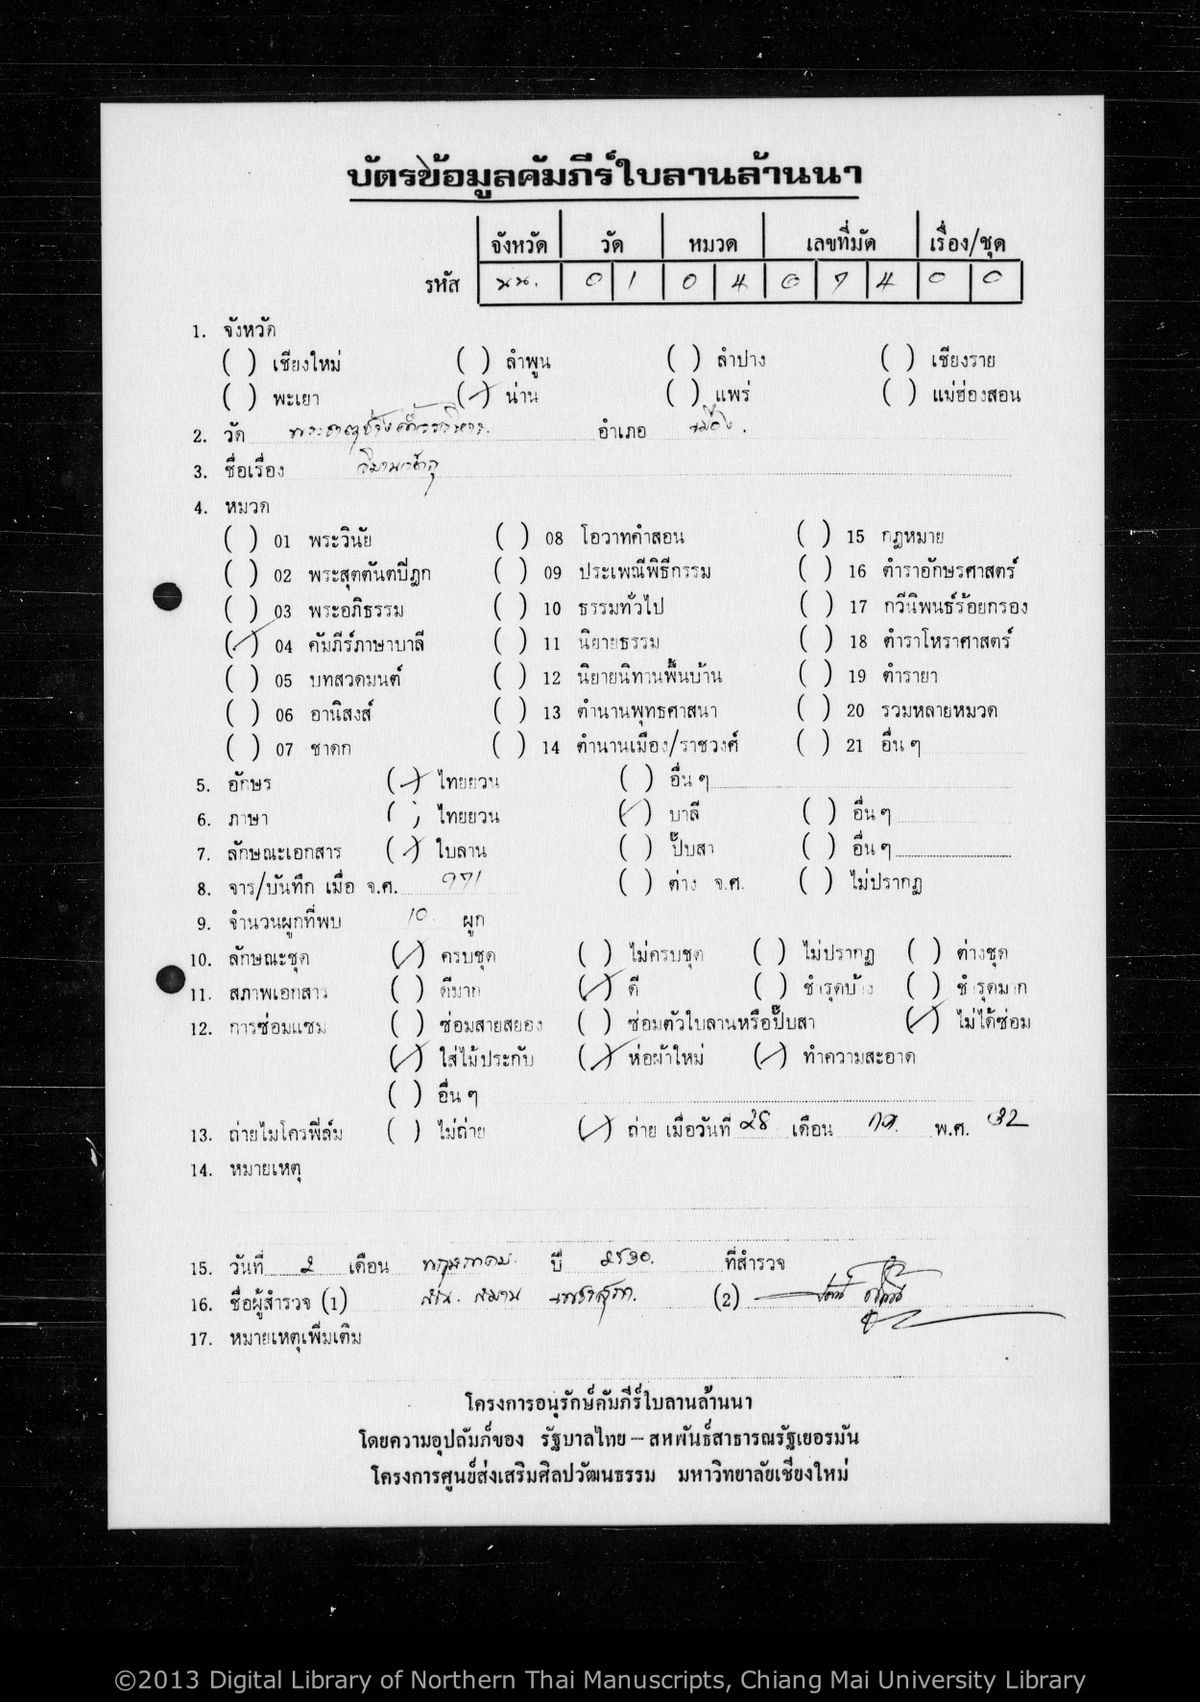 บัตรข้อมูลคัมภีร์ใบลานล้านนา
จังหวัด วัด หมวด เลขที่มัด เรื่อง/ชุด
รหัส นน. 0 1 0 4 0 7 4 0 0
1. จังหวัด
( ) เชียงใหม่ ( ) ลำพูน ( ) ลำปาง ( ) เชียงราย
( ) พะเยา (✓) น่าน ( ) แพร่ ( ) แม่ฮ่องสอน
2. วัด พระธาตุช้างค้ำวรวิหาร อำเภอ เมือง.
3. ชื่อเรื่อง วิมานวัตถุ
4. หมวด
( ) 01 พระวินัย ( ) 08 โอวาทคำสอน ( ) 15 กฎหมาย
( ) 02 พระสุตตันตปิฎก ( ) 09 ประเพณีพิธีกรรม ( ) 16 ตำราอักษรศาสตร์
( ) 03 พระอภิธรรม ( ) 10 ธรรมทั่วไป ( ) 17 กวีนิพนธ์ร้อยกรอง
(✓) 04 คัมภีร์ภาษาบาลี ( ) 11 นิยายธรรม ( ) 18 ตำราโหราศาสตร์
( ) 05 บทสวดมนต์ ( ) 12 นิยายนิทานพื้นบ้าน ( ) 19 ตำรายา
( ) 06 อานิสงส์ ( ) 13 ตำนานพุทธศาสนา ( ) 20 รวมหลายหมวด
( ) 07 ชาดก ( ) 14 ตำนานเมือง/ราชวงศ์ ( ) 21 อื่น ๆ
5. อักษร (✓) ไทยยวน ( ) อื่น ๆ
6. ภาษา ( ) ไทยยวน (✓) บาลี ( ) อื่น ๆ
7. ลักษณะเอกสาร (✓) ใบลาน ( ) ปั๊บสา ( ) อื่น ๆ
8. จาร/บันทึก เมื่อ จ.ศ. 971 ( ) ต่าง จ.ศ. ( ) ไม่ปรากฏ
9. จำนวนผูกที่พบ 10 ผูก
10. ลักษณะชุด (✓) ครบชุด ( ) ไม่ครบชุด ( ) ไม่ปรากฏ ( ) ต่างชุด
11. สภาพเอกสาร ( ) ดีมาก (✓) ดี ( ) ชำรุดบ้าง ( ) ชำรุดมาก
12. การซ่อมแซม ( ) ซ่อมสายสยอง ( ) ซ่อมตัวใบลานหรือปั๊บสา (✓) ไม่ได้ซ่อม
(✓) ใส่ไม้ประกับ (✓) ห่อผ้าใหม่ (✓) ทำความสะอาด
( ) อื่น ๆ
13. ถ่ายไมโครฟิล์ม ( ) ไม่ถ่าย (✓) ถ่าย เมื่อวันที่ 28 เดือน พ.ศ. 32
14. หมายเหตุ
15. วันที่ 2 เดือน พฤษภาคม ปี 2530. ที่สำรวจ
16. ชื่อผู้สำรวจ (1) (2)
17. หมายเหตุเพิ่มเติม
โครงการอนุรักษ์คัมภีร์ใบลานล้านนา
โดยความอุปถัมภ์ของ รัฐบาลไทย – สหพันธ์สาธารณรัฐเยอรมัน
โครงการศูนย์ส่งเสริมศิลปวัฒนธรรม มหาวิทยาลัยเชียงใหม่
©2013 Digital Library of Northern Thai Manuscripts, Chiang Mai University Library